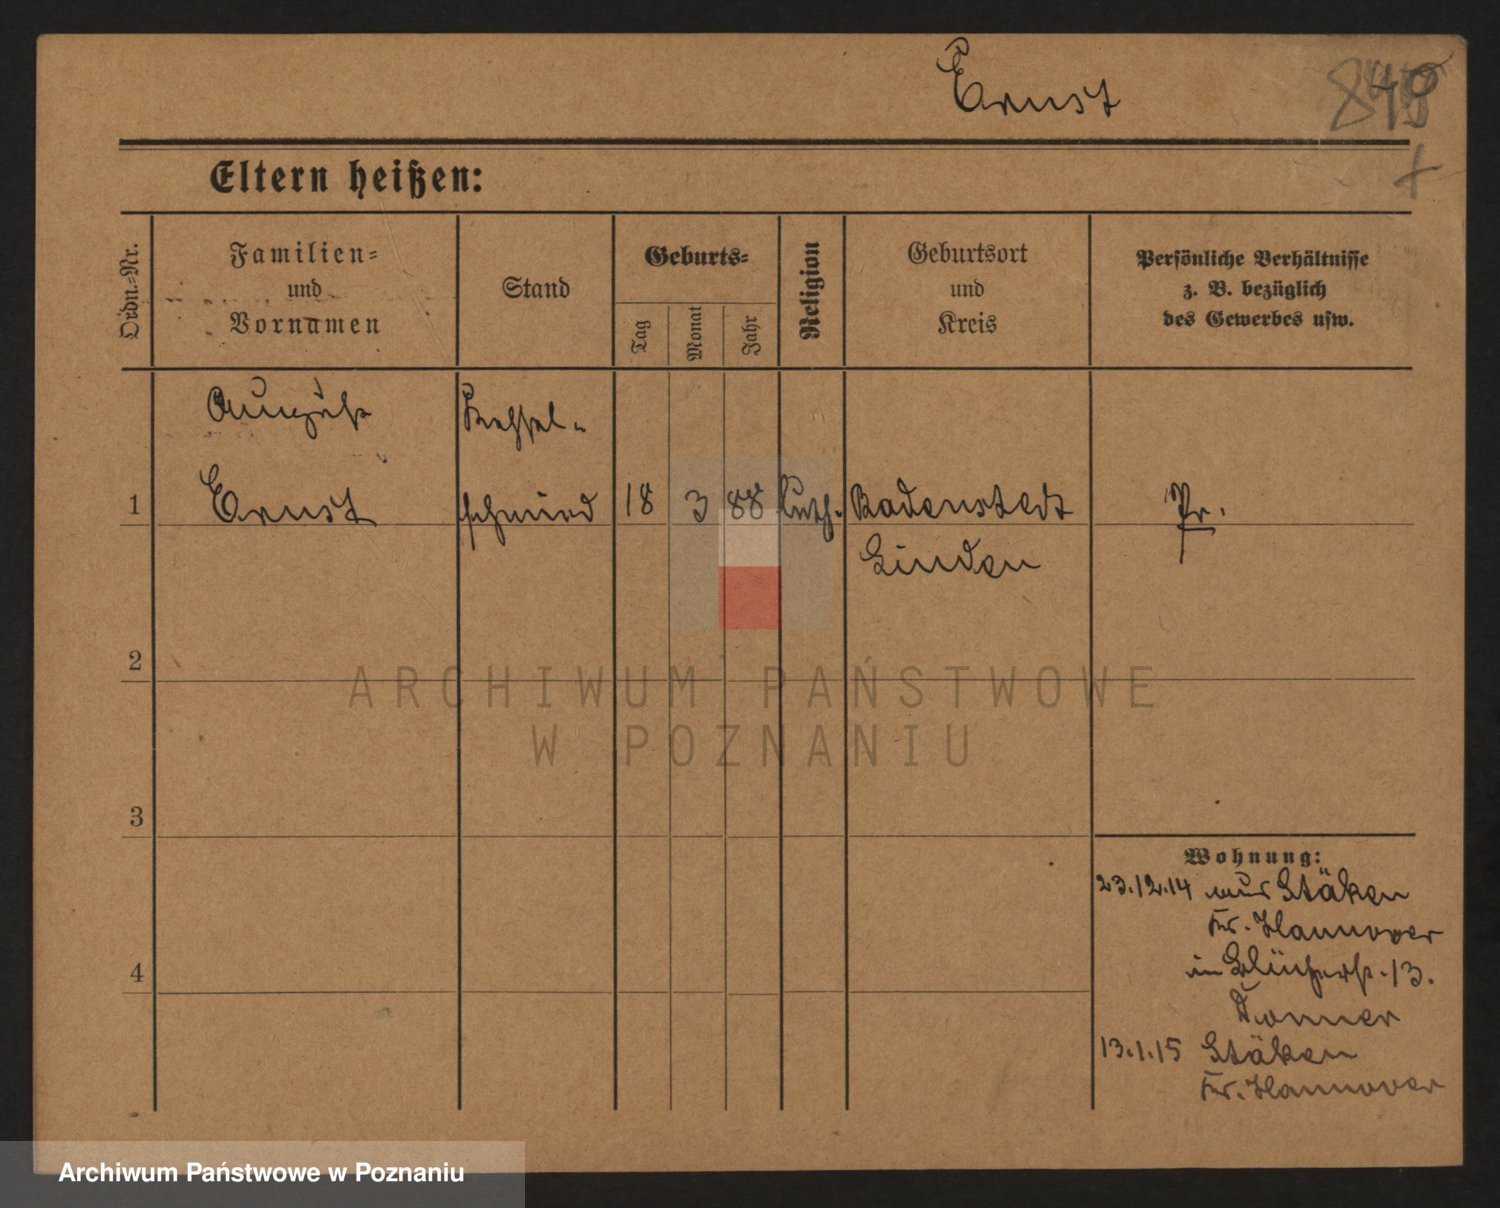 Ernst
Eltern heißen:
Ordn.=Nr.
Familien=
und
Vornamen
Stand
Geburts=
Tag
Monat
Jahr
Religion
Geburtsort
und
Kreis
Persönliche Verhältnisse
z. B. bezüglich
des Gewerbes usw.
August Kessel-
1 Ernst schmied 18 3 88 luth. Badenstedt Pr.
Linden
2
ARCHIWUM PAŃSTWOWE
W POZNANIU
3
Wohnung:
23.12.14 aus Stöken
Kr. Hannover
4 in Blücherst. 13.
13.1.15 Stöken
Kr. Hannover
Archiwum Państwowe w Poznaniu